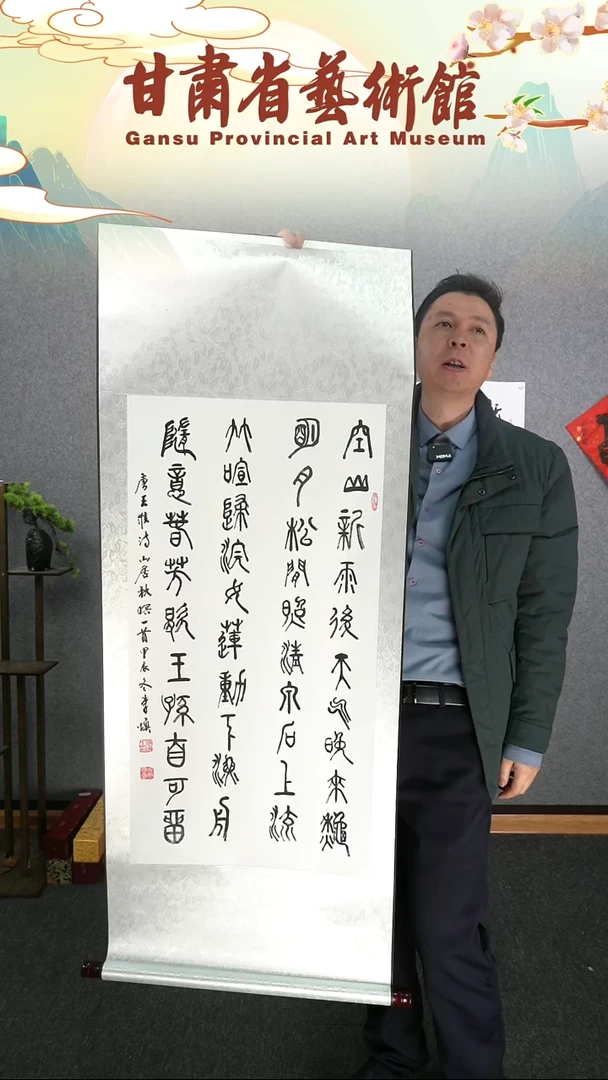 甘肅省藝術館
Gansu Provincial Art Museum
空山新雨後天气晚来龝
明月松間照清泉石上流
竹喧歸浣女蓮動下漁舟
隨意春芳歇王孫自可留
唐王維诗山居秋暝一首甲辰冬李燦